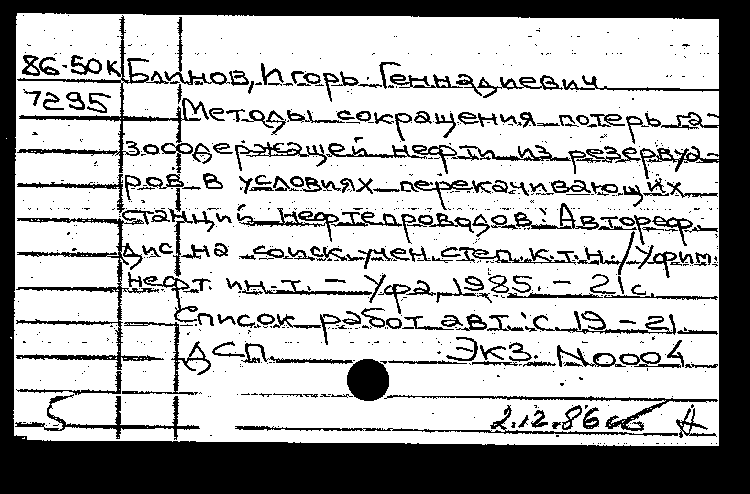 86-50к Блинов, Игорь Геннадиевич.
7295 Методы сокращения потерь га-
зосодержащей нефти из резервуа-
ров в условиях перекачивающих
станций нефтепроводов: Автореф.
дис. на соиск. учен. степ. к.т.н. / Уфим.
нефт. ин-т. – Уфа, 1985. – 21 с.
Список работ авт.: с. 19 – 21
ДСП. Экз. N0004
5 2.12.86 А